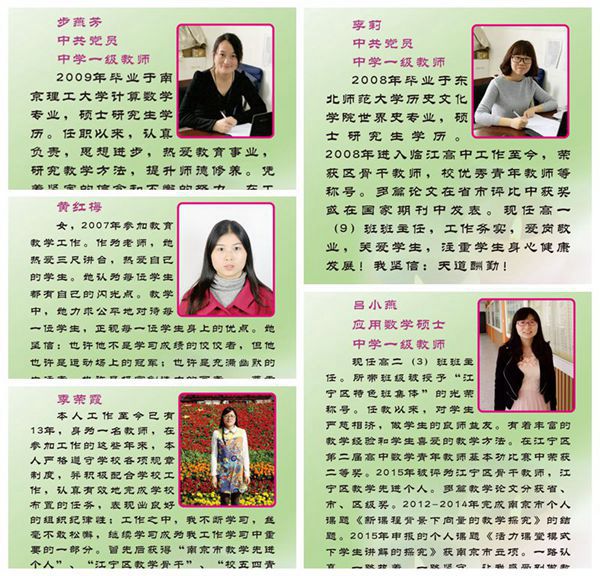 步燕芳
中共党员
中学一级教师
2009年毕业于南
京理工大学计算数学
专业，硕士研究生学
历。任职以来，认真
负责，思想进步，热爱教育事业，
研究教学方法，提升师德修养。凭
黄红梅
女，2007年参加教育
教学工作。作为老师，她
热爱三尺讲台，热爱自己
的学生。她认为每位学生
都有自己的闪光点。教学
中，她力求公平地对待每
一位学生，正视每一位学生身上的优点。她
坚信：也许他不是学习成绩的佼佼者，但他
也许是运动场上的冠军；也许是充满幽默的
季荣霞
本人工作至今已有
13年，身为一名教师，在
参加工作的这些年来，本
人严格遵守学校各项规章
制度，并积极配合学校工
作，认真有效地完成学校
布置的任务，表现出良好
的组织纪律性；工作之中，我不断学习，丝
毫不敢松懈，继续学习成为我工作学习中重
要的一部分。首先后获得“南京市教学先进
个人”、“江宁区教学骨干”、“校五四青
李莉
中共党员
中学一级教师
2008年毕业于东
北师范大学历史文化
学院世界史专业，硕
士研究生学历。
2008年进入临江高中工作至今，荣
获区骨干教师，校优秀青年教师等
称号。多篇论文在省市评比中获奖
或在国家期刊中发表。现任高一
（9）班班主任，工作务实，爱岗敬
业，关爱学生，注重学生身心健康
发展！我坚信：天道酬勤！
吕小燕
应用数学硕士
中学一级教师
现任高二（3）班班主
任。所带班级被授予“江
宁区特色班集体”的光荣
称号。任教以来，对学生
严慈相济，做学生的良师益友。有着丰富的
教学经验和学生喜爱的教学方法。在江宁区
第二届高中数学青年教师基本功比赛中荣获
二等奖。2015年被评为江宁区骨干教师，江
宁区教学先进个人。多篇教学论文分获省、
市、区级奖。2012-2014年完成南京市个人
课题《新课程背景下向量的教学探究》的结
题。2015年申报的个人课题《活力课堂模式
下学生讲解的探究》获南京市立项。一路认